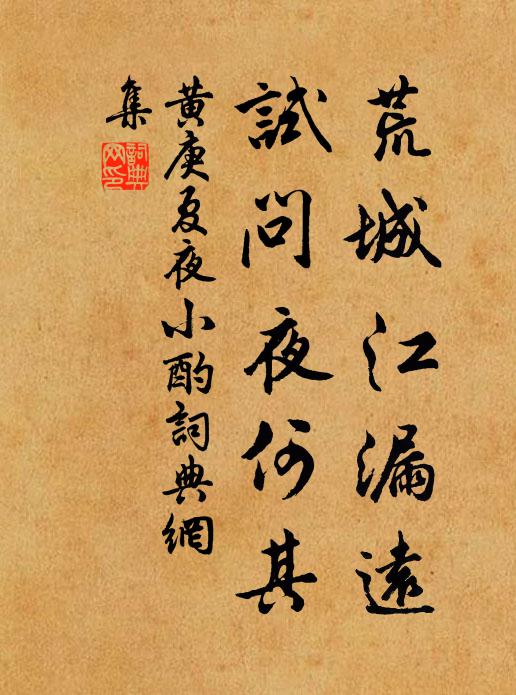 荒城江漏遠
試問夜何其
黄庚夏夜小酌詞典網
集
詞典
网印